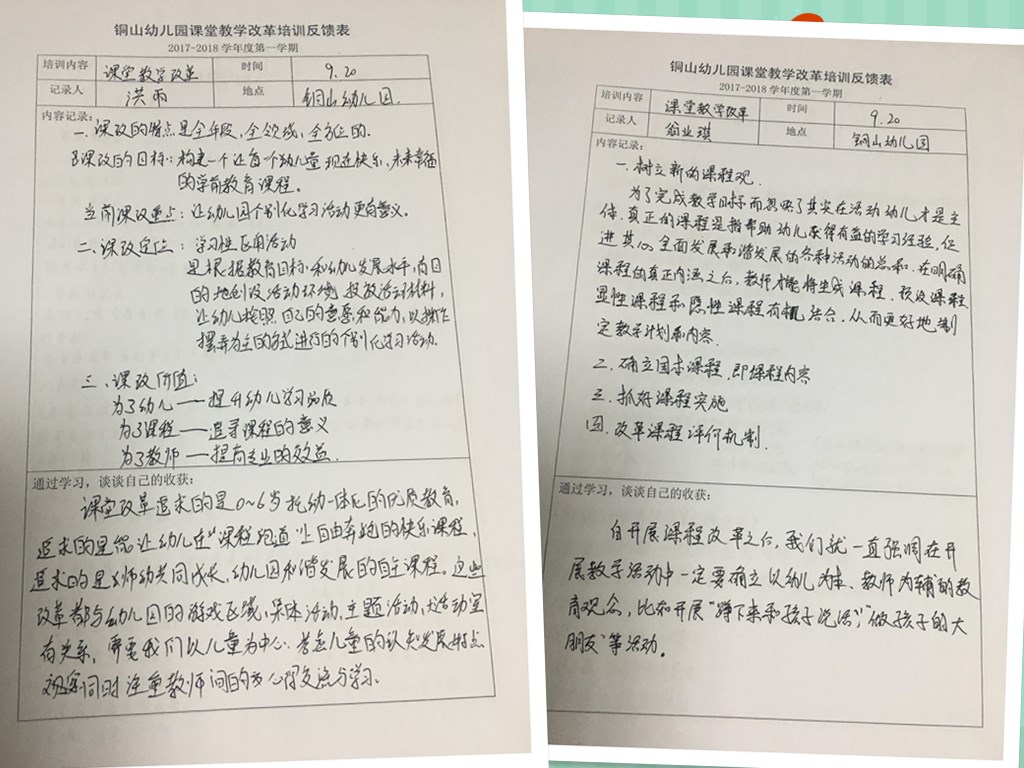 铜山幼儿园课堂教学改革培训反馈表
2017-2018 学年度第一学期
培训内容 课堂教学改革 时间 9.20
记录人 洪雨 地点 铜山幼儿园.
内容记录:
一.课改的特点是全年段,全领域,全方位的.
课改的目标:构建一个让每个幼儿童现在快乐,未来幸福
的学前教育课程.
当前课改重点:让幼儿园个别化学习活动更有意义.
二、课改定位:学习性区角活动
是根据教育目标和幼儿发展水平,有目
的地创设活动环境,投放活动材料,
让幼儿按照自己的意愿和能力,以操作
摆弄为主的方式进行的个别化学习活动.
三.课改价值:
为了幼儿——提升幼儿学习品质
为了课程——追寻课程的意义
为了教师——提高专业的效益.
通过学习,谈谈自己的收获:
课堂改革追求的是0~6岁托幼一体化的优质教育,
追求的是能让幼儿在"课程跑道"上自由奔跑的快乐课程,
追求的是师幼共同成长、幼儿园和谐发展的自主课程。这些
改革都与幼儿园的游戏区域,集体活动,主题活动,大活动室
有关系,需要我们以儿童为中心.考虑儿童的认知发展特点
同时注重教师间的心得交流与学习.
铜山幼儿园课堂教学改革培训反馈表
2017-2018 学年度第一学期
培训内容 课堂教学改革 时间 9.20
记录人 翁业琪 地点 铜山幼儿园
内容记录:
一.树立新的课程观.
为了完成教学目标而忽略了其实在活动幼儿才是主
体.真正的课程是指帮助幼儿获得有益的学习经验,促
进其身心全面发展和谐发展的各种活动的总和.在明确
课程的真正内涵之后,教师才能将生成课程、预设课程
显性课程和隐性课程有机结合.从而更好地制
定教学计划和内容.
二.确立园本课程.即课程内容
三.抓好课程实施
四.改革课程评价机制.
通过学习,谈谈自己的收获:
自开展课程改革之后,我们就一直强调在开
展教学活动中一定要确立以幼儿为本、教师为辅的教
育观念,比如开展"蹲下来和孩子说话""做孩子的大
朋友"等活动。